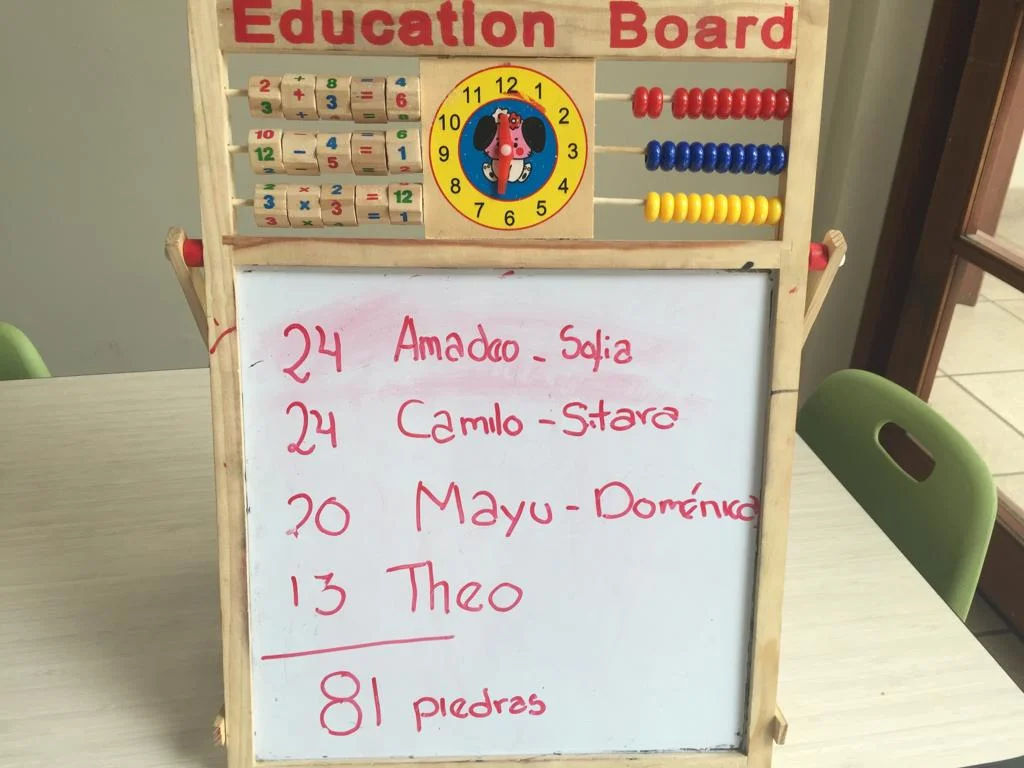 Education Board
2 + 8 = 4
3 + 3 = 6
10 4 6
12 - 5 = 1
2 x 2 12
3 x 3 = 1
12 1 2 3 4 5 6 7 8 9 10 11
24 Amadeo - Sofia
24 Camilo - Sitara
20 Mayu - Doménica
13 Theo
81 piedras